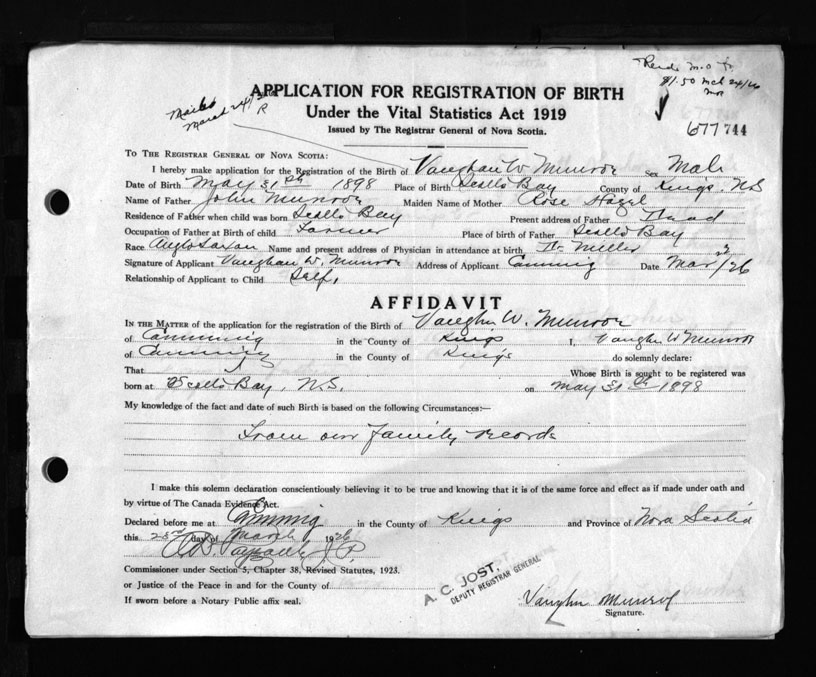 Recd. M.O. fr
$1.50 Mch 24/26
Mailed
March 24/26
R
APPLICATION FOR REGISTRATION OF BIRTH
Under the Vital Statistics Act 1919
Issued by The Registrar General of Nova Scotia.
677 744
TO THE REGISTRAR GENERAL OF NOVA SCOTIA:
I hereby make application for the Registration of the Birth of Vaughan W Munroe Sex Male
Date of Birth May 31st 1898 Place of Birth Scotts Bay County of Kings. N.S
Name of Father John Munroe Maiden Name of Mother Rose Hazel
Residence of Father when child was born Scotts Bay Present address of Father Dead
Occupation of Father at Birth of child Farmer Place of birth of Father Scotts Bay
Race Anglo Saxon Name and present address of Physician in attendance at birth Dr Miller
Signature of Applicant Vaughan W. Munroe Address of Applicant Canning Date Mar 23/26
Relationship of Applicant to Child Self.
AFFIDAVIT
IN THE MATTER of the application for the registration of the Birth of Vaughn W. Munroe
of Canning in the County of Kings I, Vaughn W Munroe
of Canning in the County of Kings do solemnly declare:
That I Whose Birth is sought to be registered was
born at Scotts Bay, N.S. on May 31st 1898
My knowledge of the fact and date of such Birth is based on the following Circumstances:—
From our family records
I make this solemn declaration conscientiously believing it to be true and knowing that it is of the same force and effect as if made under oath and
by virtue of The Canada Evidence Act.
Declared before me at Canning in the County of Kings and Province of Nova Scotia
this 23rd day of March 1926
J. P.
Commissioner under Section 5, Chapter 38, Revised Statutes, 1923.
or Justice of the Peace in and for the County of
If sworn before a Notary Public affix seal.
A. C. JOST,
DEPUTY REGISTRAR GENERAL
Vaughn Munroe
Signature.